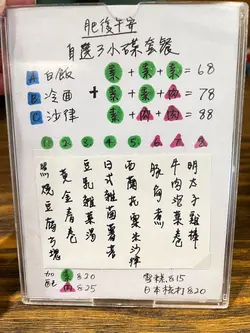 肥後午安
自選3小碟套餐
A 白飯 素+素+素=68
B 冷面 + 素+素+肉=78
C 沙律 素+肉+肉=88
1 2 3 4 5 6 7 8
明太子雞棒
牛肉翠菜卷
豚角煮
西蘭花粟米沙律
日式雜菌薯蓉
豆乳雜菜湯
黃金春卷
照燒豆腐方塊
加配 素 $20
肉 $25
雪糕 $15
日本梳打 $20